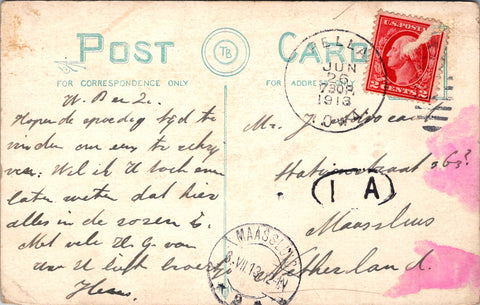 POST CARD
TB
FOR CORRESPONDENCE ONLY
FOR ADDRESS
U.S. POSTAGE
2 CENTS 2
PELLA
JUN
26
730P
1913
IOWA
W. B en Z.
Hopende spoedig tijd te
vinden om een te
ver. Wil ik U toch even
laten weten dat hier
alles in de rozen is.
Met vele H. G. van
Uw U liefh broertje
Herm.
Mr. J.
363
Maassluis
Netherland.
(1 A)
MAASSLUIS
VII.13